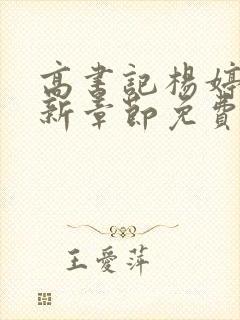 高書記楊婷
新章節免費
王愛萍